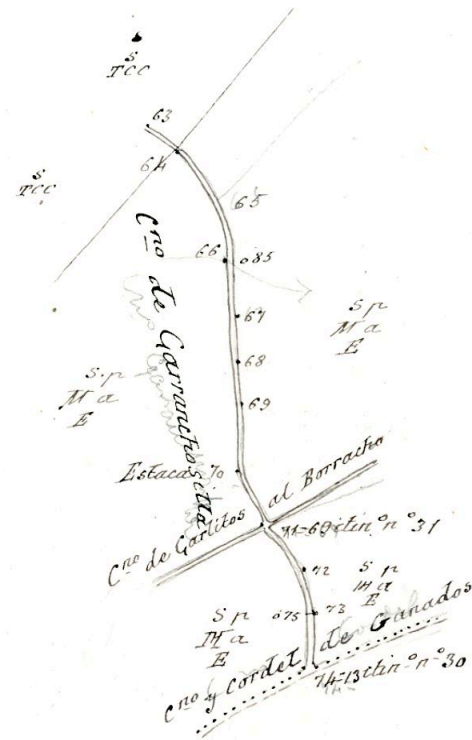 S
TCC
63
64
S
TCC
65
66
085
Cno de Garranchosilla
67
S p
M a
E
68
S. p
M a
E
69
Estaca 70
Cno de Garlitos al Borracho
71-60 itin o n o 31
72
S p
M a
E
S p
M a
E
075
73
Cno y Cordel de Ganados
74-13 itin o n o 30